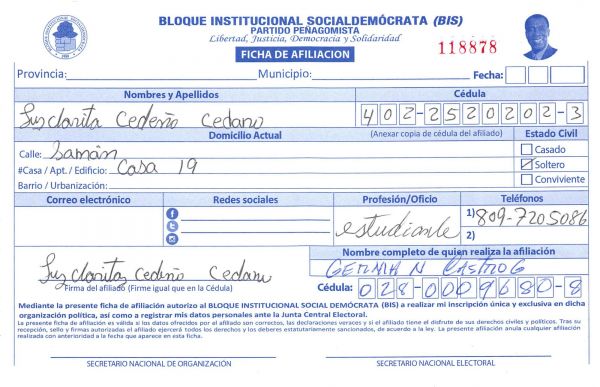 BLOQUE INSTITUCIONAL SOCIALDEMÓCRATA (BIS)
PARTIDO PEÑAGOMISTA
Libertad, Justicia, Democracia y Solidaridad
FICHA DE AFILIACION
118878
Provincia: Municipio: Fecha:
Nombres y Apellidos Cédula
Luzclarita Cedeño Cedano 402-2520202-3
Domicilio Actual (Anexar copia de cédula del afiliado) Estado Civil
Calle: Samán Casado
#Casa / Apt. / Edificio: Casa 19 Soltero
Barrio / Urbanización: Conviviente
Correo electrónico Redes sociales Profesión/Oficio Teléfonos
estudiante 1) 809-7205086
2)
Nombre completo de quien realiza la afiliación
Luzclarita Cedeño Cedano GERMAN CASTRO G
Firma del afiliado (Firme igual que en la Cédula) Cédula: 028-0009680-8
Mediante la presente ficha de afiliación autorizo al BLOQUE INSTITUCIONAL SOCIAL DEMÓCRATA (BIS) a realizar mi inscripción única y exclusiva en dicha
organización política, así como a registrar mis datos personales ante la Junta Central Electoral.
La presente ficha de afiliación es válida a los datos ofrecidos por el afiliado son correctos, las declaraciones veraces y si el afiliado tiene el disfrute de sus derechos civiles y políticos. Tras su
recepción, sello y firmas autorizadas el afiliado ejercerá todos los derechos y los deberes estatutariamente sancionados, de acuerdo a la ley. La presente afiliación anula cualquier afiliación
realizada con anterioridad a la fecha que aparece en esta ficha.
SECRETARIO NACIONAL DE ORGANIZACIÓN SECRETARIO NACIONAL ELECTORAL